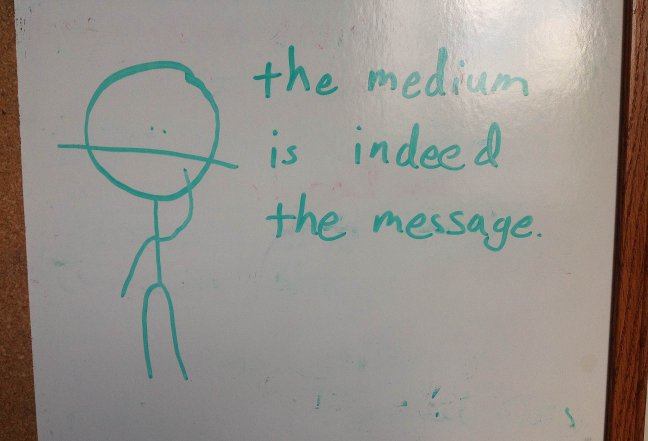 the medium
is indeed
the message.